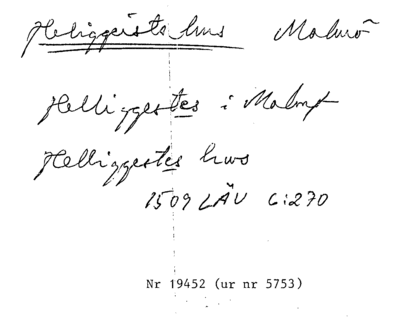 Heliggeists hus Malmö
Helliggestes i Malmø
Helliggestes hws
1509 LÄU 6:270
Nr 19452 (ur nr 5753)